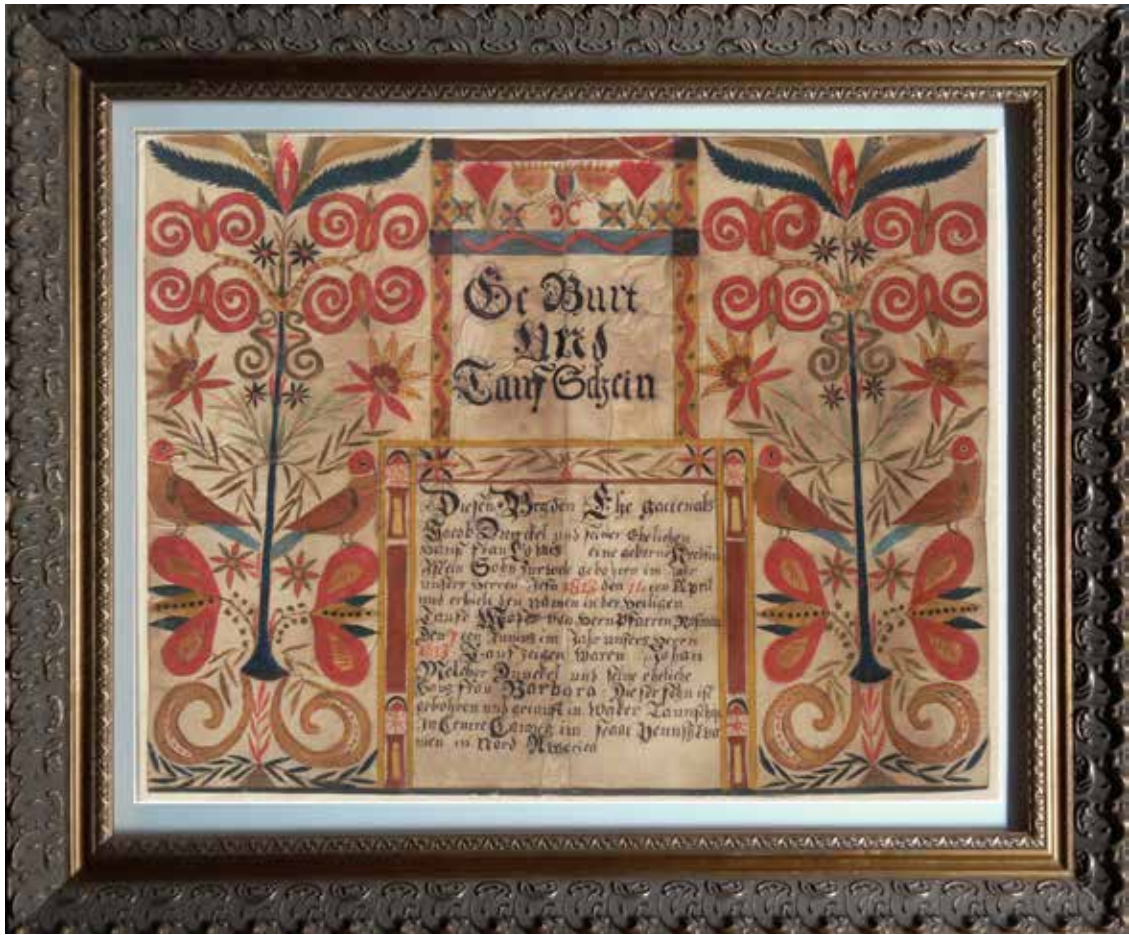 Ge Burt
UNd
Tauf Schein
Diesen Beyden Ehe gattenals
Jacob Dunckel und seiner Ehelichen
Haus frau eine geborne
Ist ein Sohn zur welt gebohren im Jahr
unsers Herren Jesu 1813 den ten April
und erhielt den namen in der Heiligen
Taufe von Hern Pfarrer
den 7 ten Junius im Jahr unsers Herrn
1813 Tauf zeigen waren Johan
Melcher Dunckel und seine eheliche
Haus frau Barbara Dieser sohn ist
gebohren und getauft in
in Centre im staat Pennsilva
nien in Nord America